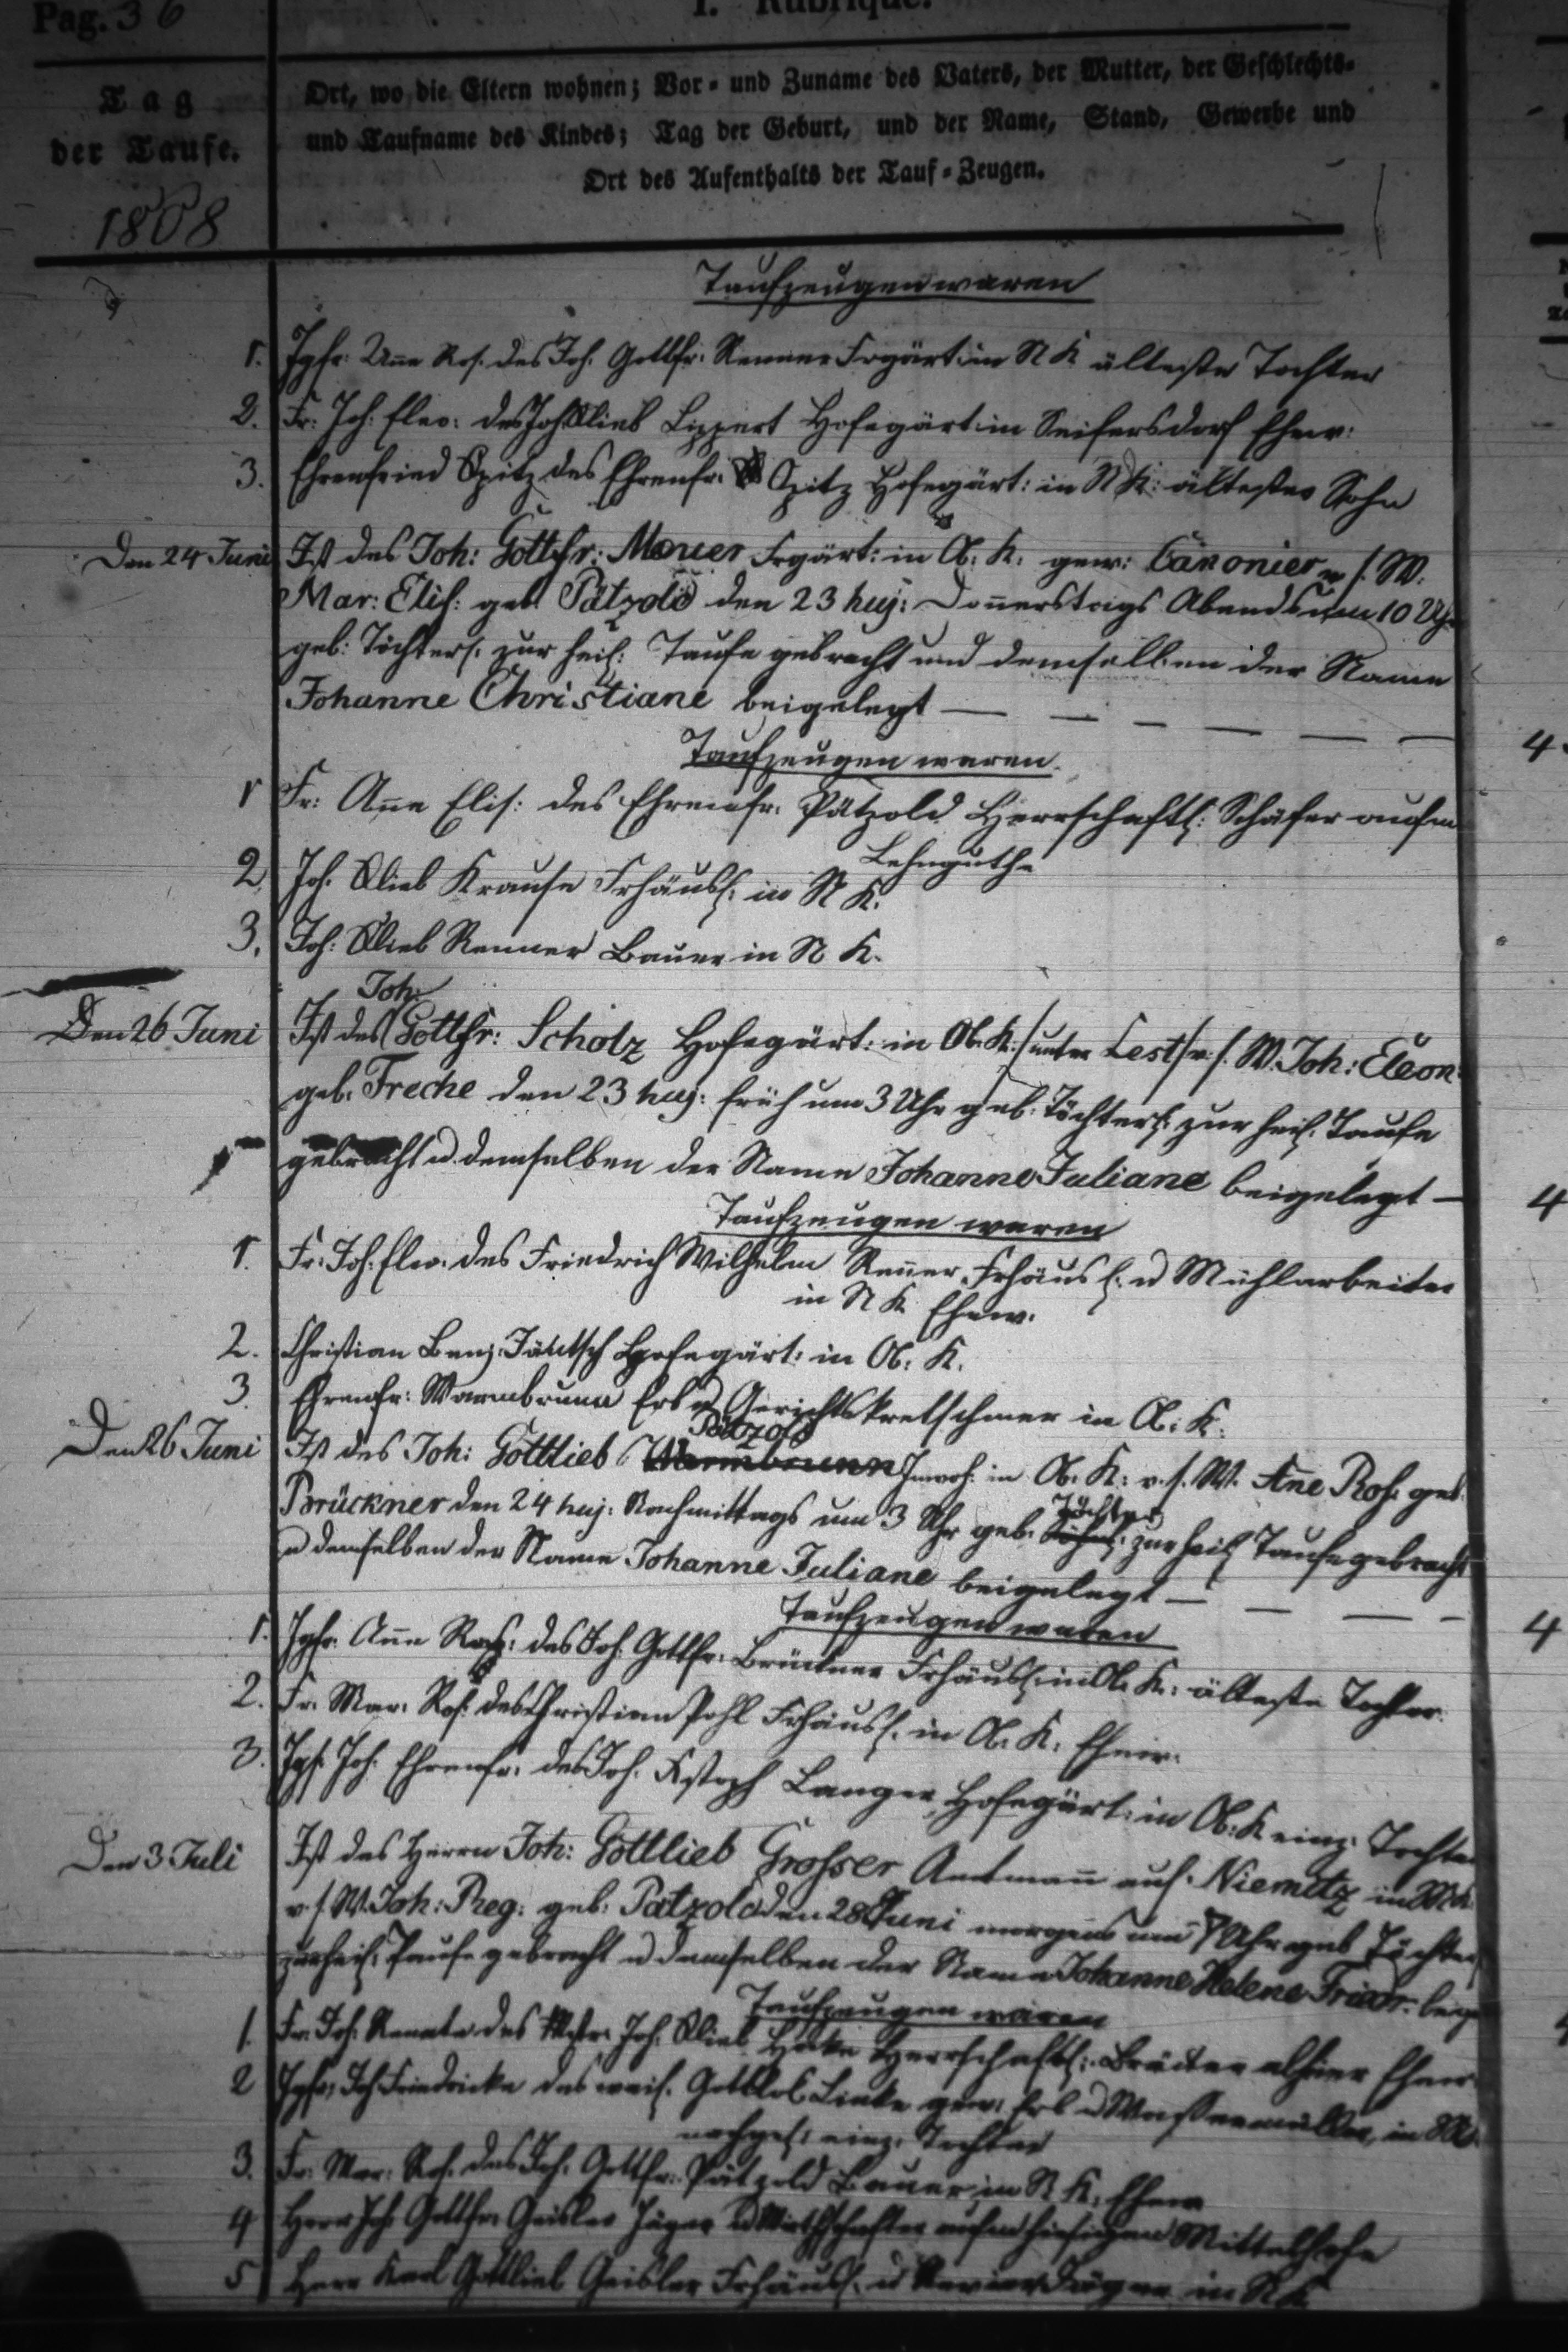 Pag. 36
I. Rubrique.
Tag
der Taufe.
1808
Ort, wo die Eltern wohnen; Vor- und Zuname des Vaters, der Mutter, der Geschlechts-
und Taufname des Kindes; Tag der Geburt, und der Name, Stand, Gewerbe und
Ort des Aufenthalts der Tauf-Zeugen.
Taufzeugen waren
1. Jgfr: Anne Ros. des Joh. Gottfr: Renner Frgärt: in N K älteste Tochter
2. Fr: Joh: Eleo: des Joh Glieb Lippert Hofegärt: in Seifersdorf Ehew:
3. Ehrenfried Opitz des Ehrenfr: Opitz Hofegärt: in N K: ältester Sohn
Den 24 Juni Ist des Joh: Gottfr: Frgärt: in Ob. K. gew: Canonier v. s. W.
Mar: Elis: geb. Pätzold den 23 huj: Donnerstags Abends um 10 Uhr
geb: Töchterl. zur heil: Taufe gebracht und demselben der Name
Johanne Christiane beigelegt — — — — — —
Taufzeugen waren.
1 Fr: Anne Elis: des Ehrenfr. Pätzold Herrschaftl: Schäfer aufm
Lehnguthe
2. Joh. Glieb Krause Frhäusl: in N K.
3. Joh: Glieb Renner Bauer in N K.
Joh:
Den 26 Juni Ist des Gottfr: Scholz Hofegärt: in Ob. K: /unter Lest/ v. s. W. Joh: Eleon:
geb. Freche den 23 huj: früh um 3 Uhr geb. Töchterl: zur heil. Taufe
gebracht u. demselben der Name Johanne Juliane beigelegt —
Taufzeugen waren
1. Fr: Joh. Eleo. des Friedrich Wilhelm Renner Frhäusl: u Mühlarbeiter
in N K Ehew.
2. Christian Benj. Jäntsch Hofegärt: in Ob. K.
3. Ehrenfr: Warmbrunn Erb u Gerichtskretschmer in Ob: K.
Pätzold
Den 26 Juni Ist des Joh: Gottlieb Warmbrunn Inwoh. in Ob. K: v. s. W. Ane Ros. geb.
Töchter
Brückner den 24 huj: Nachmittags um 3 Uhr geb. zur heil Taufe gebracht
u demselben der Name Johanne Juliane beigelegt — — — —
Taufzeugen waren
1. Jgfr. Anne Ros: des Joh. Gottfr. Brückner Frhäusl: in Ob. K: älteste Tochter.
2. Fr. Mar: Ros. des Christian Pohl Frhäusl. in Ob. K. Ehew.
3. Jgfr. Joh. Ehrenfr: des Joh. Langer, Hofegärt: in Ob: K einz. Tochter
Den 3 Juli Ist des Herrn Joh: Gottlieb Grosser Amtmann auf Niemitz in
v. s. W. Joh: Reg: geb. Pätzold den 28 Juni morgens um 7 Uhr geb Töchterl
zur heil. Taufe gebracht u demselben der Name Johanne Helene Friedr. beig
Taufzeugen waren
1. Fr. Joh. Renate des Mstr. Joh. Glieb Herrschaftl: alhier Ehew.
2 Jgfr. Joh Friedricke des weil. Gottlob Linke gew. Erb u Wassermüller, in
nachgel: einz. Tochter
3. Fr. Mar: Ros. des Joh. Gottfr. Pätzold Bauer in N K. Ehew
4 Herr Joh Gottfr. Geisler Jäger u Wirthschafter aufm hiesigen Mittelhofe
5 Herr Karl Gottlieb Geisler Frhäusl. u Revier Jäger in N K
4
4
4